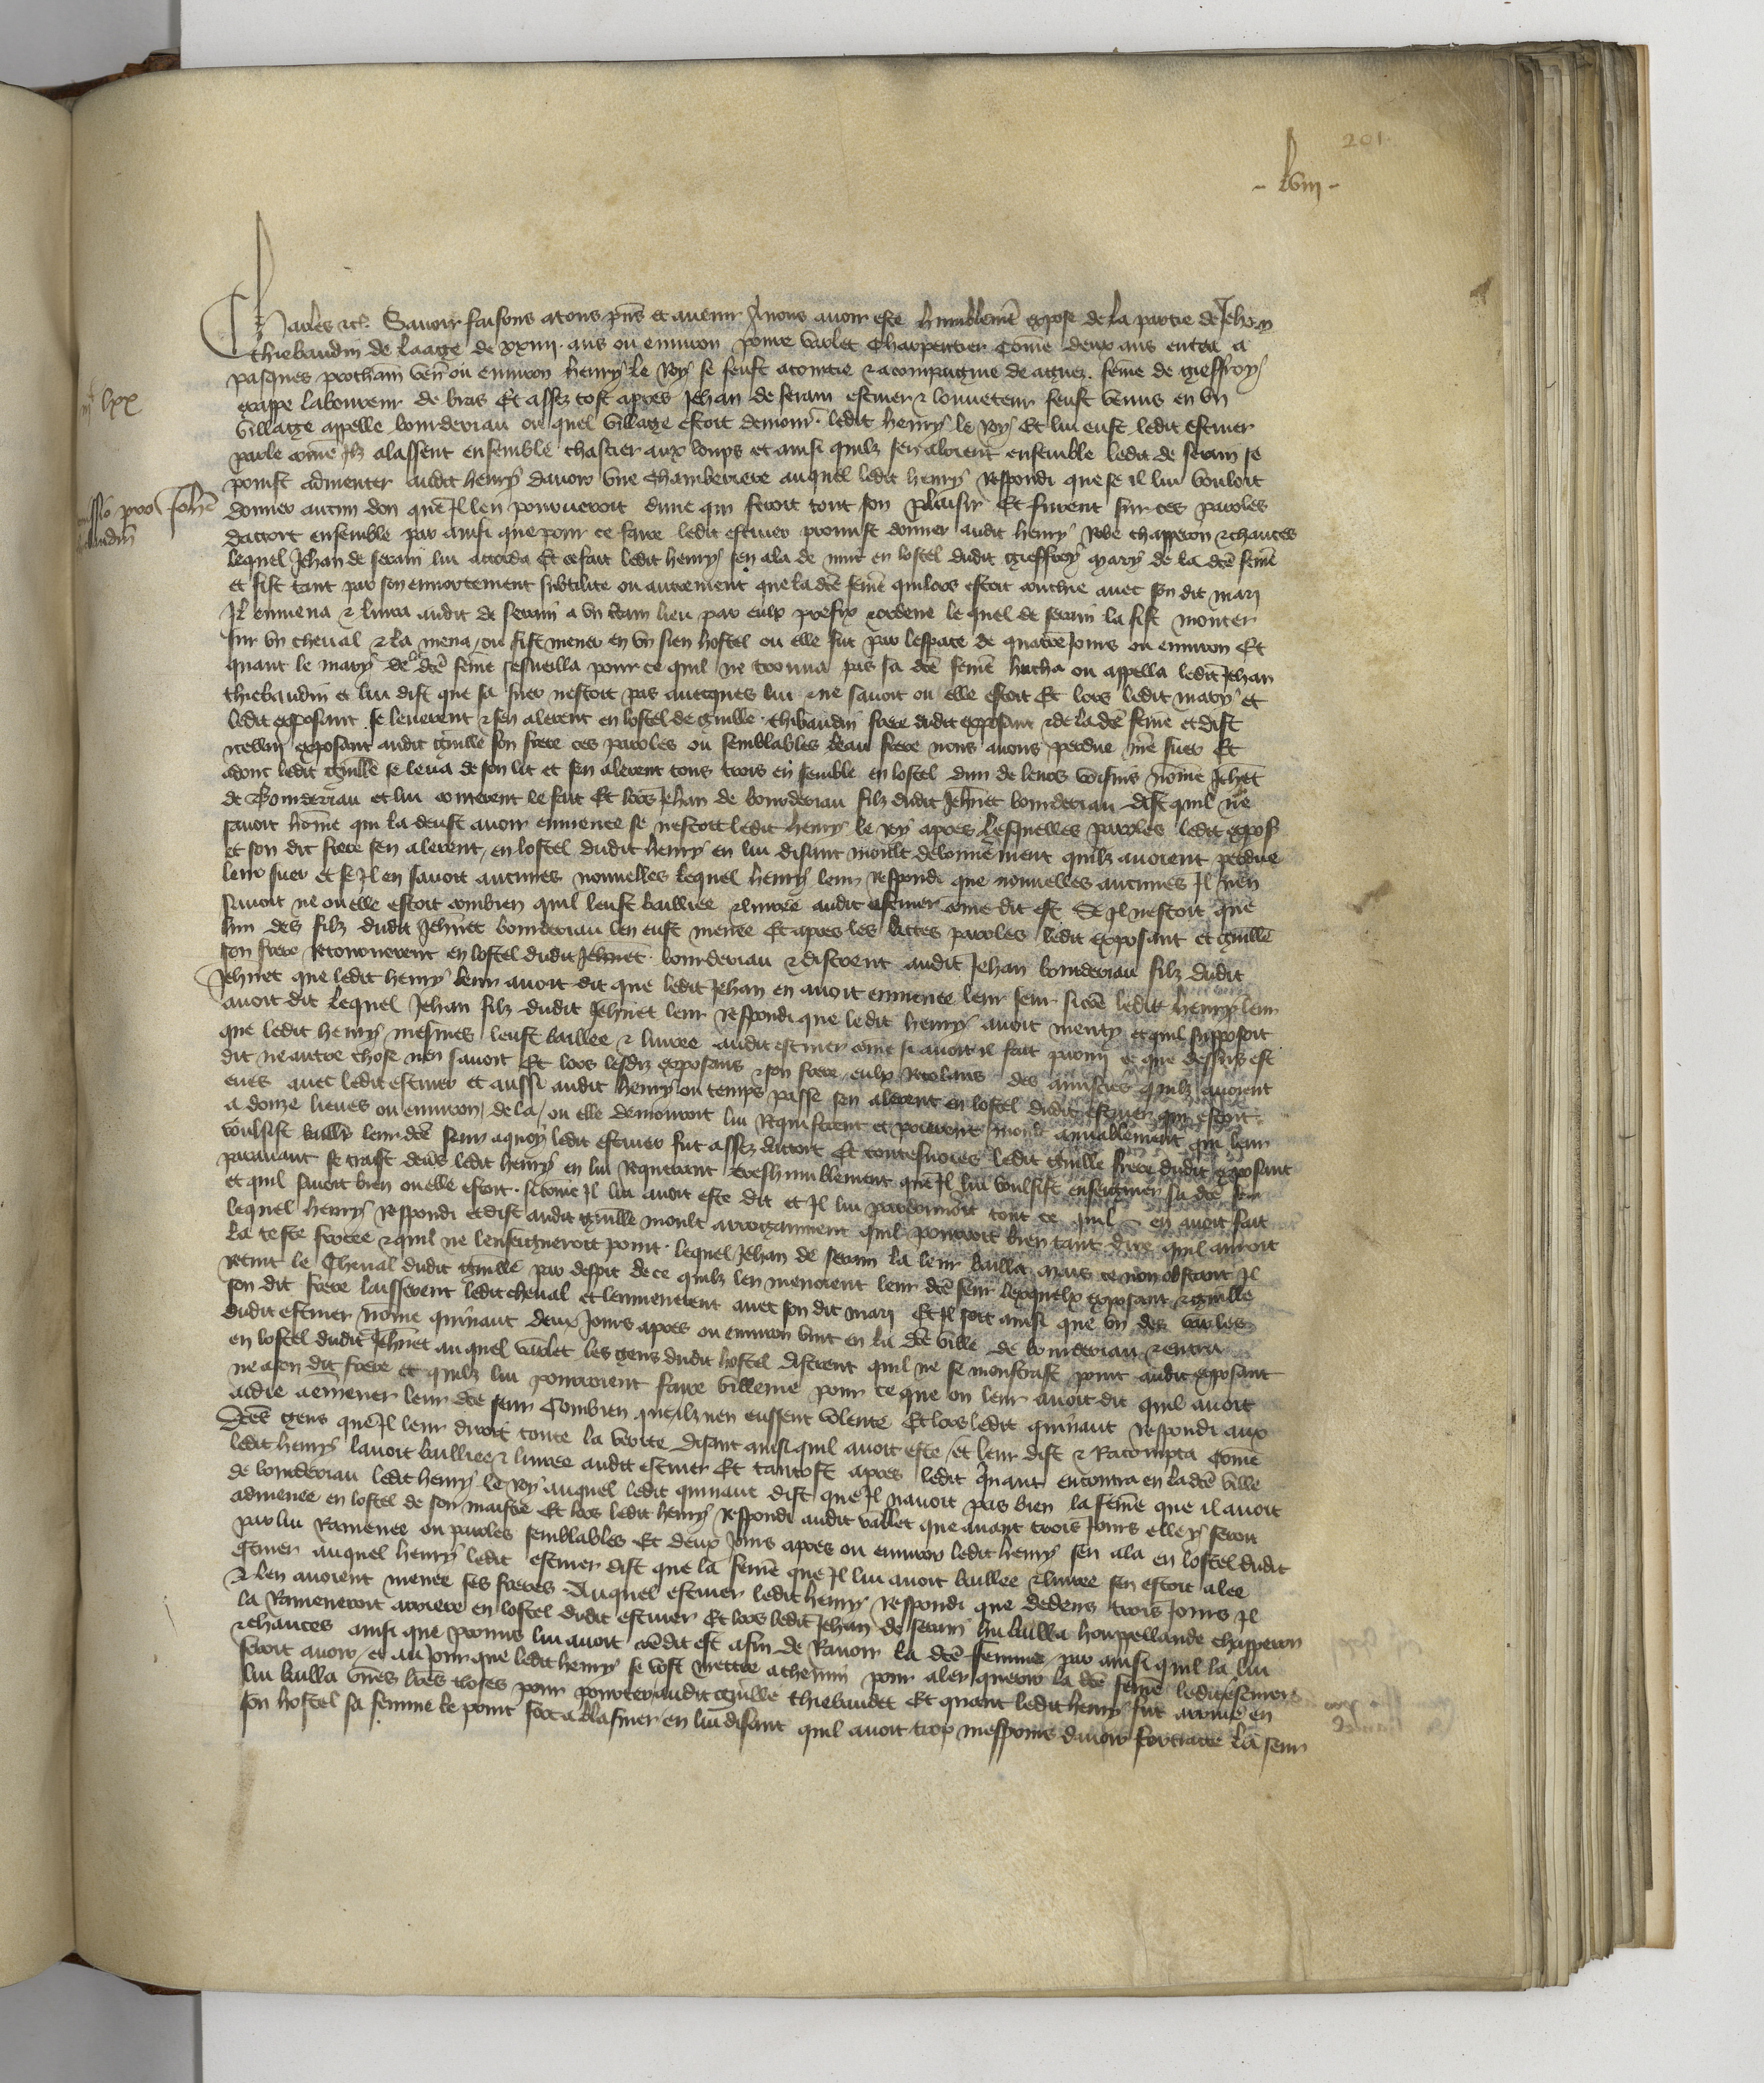 201
- lviii -
Charles etc. Savoir faisons a tous pns et avenir A nous avoir este humblemt expose de la partie de Jehan
Thiebaudin de laage de xxiiii ans ou environ povre varlet charpentier Come deux ans entra a
pasques prochain ven ou environ henry le Roy se feust acointie & acompaignie de agnez feme de gieffroy
grappe laboureur de bras Et assez tost apres Jehan de serain escuier & louveteur feust venus en un
village appelle bourderiau ou quel village estoit demour ledit henry le Roy Et lui eust ledit escuier
parle come ilz alassent ensemble chascier aux loups et ainsi quilz sen aloient ensemble ledit de serain se
prinst admenter audit henry davoir une chamberiere auquel ledit henry Respondi que se il lui vouloit
donner aucun don que Il len pourverroit dune qui feroit tout son plaisir Et furent sur ces paroles
dacort ensemble par ainsi que pour ce faire ledit escuier promist donner audit henry Robe chapperon & chauces
lequel Jehan de serain lui accorda Et ce fait ledit henry sen ala de nuit en lostel dudit gieffroy mary de la dce feme
et fist tant par son ennortement subtilite ou autrement que la dce feme qui lors estoit couchie avec son dit mary
Il enmena & livra audit de serain a un ctain lieu par eulx prefix & ordene le quel de serain la fist monter
sur un cheval & la mena ou fist mener en un sien hostel ou elle fut par lespace de quatre jours ou environ Et
quant le mary de la dce feme sesveilla pour ce quil ne trouva pas sa dce feme hucha ou appella ledit Jehan
thiebaudin et lui dist que sa suer nestoit pas avecques lui & ne savoit ou elle estoit Et lors ledit mary et
ledit exposant se leverent & sen alerent en lostel de guille thibaudin frere dudit exposant & de la dce feme et dist
icellui exposant audit guille son frere ces paroles ou semblables beau frere nous avons perdue nre suer Et
adonc ledit guille se leva de son lit et sen alerent tous trois en semble en lostel dun de leurs voisins nome Jehnet
de Bourderiau et lui conterent le fait Et lors Jehan de bourderiau filz dudit Jehnet bourderiau dist quil ne
savoit home qui la deust avoir enmenee se nestoit ledit henry le Roy apres lesquelles paroles ledit expos
et son dit frere sen alerent en lostel dudit henry en lui disant moult debonnerement quilz avoient perdue
leur suer et se Il en savoit aucunes nouvelles lequel henry leur Respondi que nouvelles aucunes Il nen
savoit ne ou elle estoit combien quil leust bailliee & livree audit escuier come dit est Se Il nestoit que
lun des filz dudit Jehnet bourderiau len eust menee Et apres les dictes paroles ledit exposant et guille
son frere retournerent en lostel dudit Jehnet bourderiau & disrent audit Jehan bourderiau filz dudit
Jehnet que ledit henry leur avoit dit que ledit Jehan en avoit enmenee leur seur sicoe ledit henry leur
avoit dit lequel Jehan filz dudit Jehnet leur Respondi que ledit henry avoit menty et quil supposoit
que ledit henry mesmes leust baillee & livree audit escuier come si avoit il fait et que dessus est
dit ne autre chose nen savoit Et lors lesdiz exposans & son frere eulx Recolans des amistiez quilz avoient
eues avec ledit escuier et aussi audit henry ou temps passe sen alerent en lostel dudit escuier qui estoit
a douze lieues ou environ de la ou elle demouroit lui Requirent et prierent moult amiablement qui leur
voulsist baillr leur dce seur a quoy ledit escuier fut assez dacort Et ledit guille frere dudit exposant
paravant se traist devs ledit henry en lui Requerant treshumblement que Il lui voulsist enseigner sa dce seur
et quil savoit bien ou elle estoit sicome Il lui avoit este dit et Il lui pardonnoit tout ce quil en avoit fait
lequel henry Respondi et dist audit guille moult arrogamment quil pourroit bien tant dire quil auroit
la teste froee & quil ne lenseigneroit point lequel Jehan de serain la leur bailla mais ce non obstant Il
Retint le Cheval dudit guille par despit de ce quilz len menoient leur dce seur lesquelx exposant & guille
son dit frere laisserent ledit cheval et lenmenerent avec son dit mari Et Il soit ainsi que un des varles
dudit escuier nome quinaut deux Jours apres ou environ vint en la dce ville de bourderiau & entra
en lostel dudit Jehnet auquel varlet les gens dudit hostel disrent quil ne se monstrast point audit exposant
ne a son dit frere et quilz lui pourroient faire villenie pour ce que on leur avoit dit quil avoit
aidie a emener leur dce seur Combien que ilz nen eussent volente Et lors ledit quinaut Respondi aux
dces gens que Il leur diroit toute la verite disant ainsi quil avoit este et leur dist & Racompta come
ledit henry lavoit bailliee & livree audit escuier Et tantost apres ledit quinaut encontra en ladce ville
de bourderiau ledit henry le Roy auquel ledit quinaut dist que Il navoit pas bien la feme que il avoit
admenee en lostel de son maistre Et lors ledit henry Respondi audit vallet que avant trois Jours elle y seroit
par lui Ramenee ou paroles semblables Et deux Jours apres ou environ ledit henry sen ala en lostel dudit
escuier auquel henry ledit escuier dist que la feme que Il lui avoit baillee & livree sen estoit alee
& len avoient menee ses freres Auquel escuier ledit henry Respondi que dedens trois Jours Il
la Rameneroit arriere en lostel dudit escuier Et lors ledit Jehan de serain lui bailla houppellande chapperon
& chauces ainsi que promis lui avoit coe dit est afin de Ravoir la dce femme par ainsi quil la lui
feroit avoir et au Jour que ledit henry se vost mettre a chemin pour aler querir la dce feme ledit escuier
lui bailla unes lres closes pour porter audit guille thiebaudet Et quant ledit henry fut arrive en
son hostel sa femme le prinst fort a blasmer en lui disant quil avoit trop mespris davoir fortraite la seur
iiixx lxx
Remissio pro Johe
thibaudin